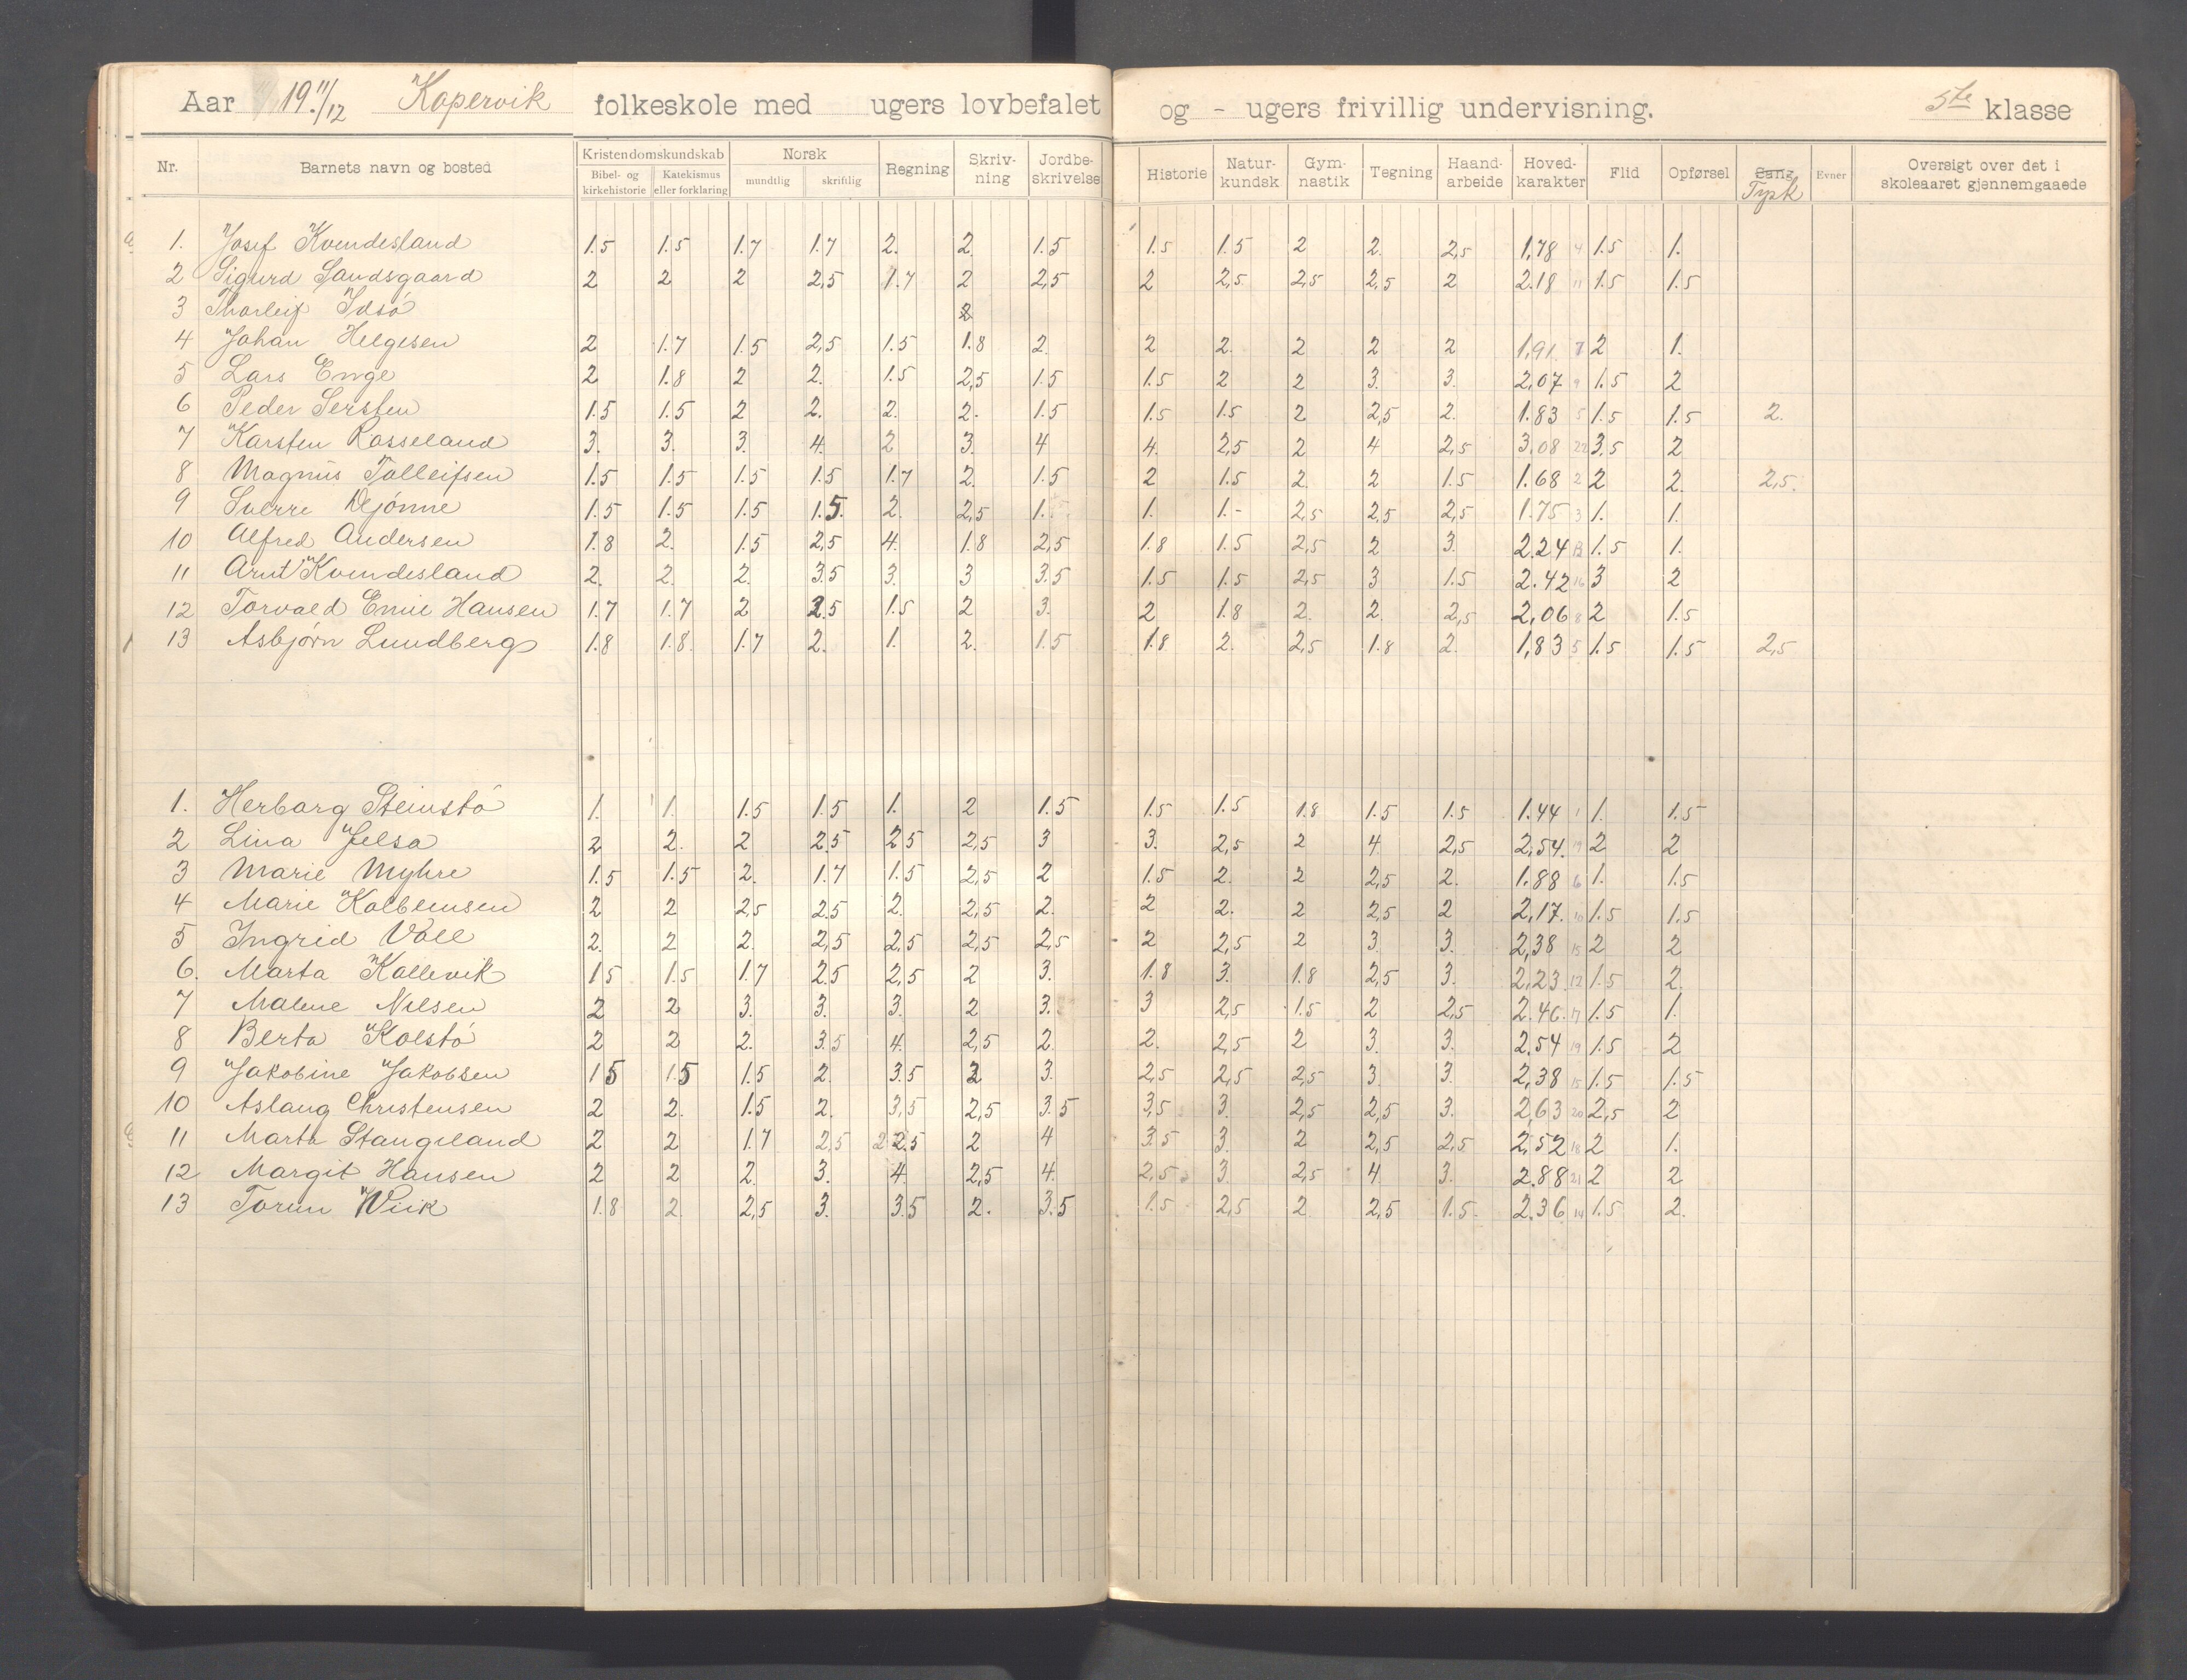 Aar 19 11/12 Kopervik folkeskole med ugers lovbefalet og - ugers frivillig undervisning. 5te klasse
Nr. Barnets navn og bosted Kristendomskundskab Norsk Regning Skriv-ning Jordbe-skrivelse Historie Natur-kundsk Gym-nastik Tegning Haand-arbeide Hoved-karakter Flid Opførsel Sang Tysk Evner Oversigt over det i skoleaaret gjennemgaaede
Bibel- og kirkehistorie Katekismus eller forklaring mundtlig skriftlig
1. Josef Kvendesland 1.5 1.5 1.7 1.7 2. 2 1.5 1.5 1.5 2 2 2,5 1,78 4 1.5 1.
2 Sigurd Sandsgaard 2 2 2 2,5 1.7 2 2,5 2 2,5 2,5 2,5 2 2.18 11 1.5 1.5
3 Thorleif Idsö 2
4 Johan Helgesen 2 1.7 1.5 2,5 1.5 1.8 2 2 2 2 2 2 1,91 7 2 1.
5 Lars Enge 2 1.8 2 2. 1.5 2,5 1.5 1.5 2 2 3. 3. 2,07 9 1.5 2
6 Peder Sersten 1.5 1.5 2 2. 2. 2. 1.5 1.5 1.5 2 2,5 2. 1.83 5 1.5 1.5 2.
7 Karsten Rosseland 3. 3. 3. 4. 2 3. 4 4. 2,5 2 4 2,5 3,08 22 3.5 2
8 Magnus Tolleifsen 1.5 1.5 1.5 1.5 1.7 2. 1.5 2 1.5 2 2 1.5 1.68 2 2 2. 2,5.
9 Sverre Djönne 1.5 1.5 1.5 1.5. 2. 2,5 1. 1. 1.- 2,5 2,5 2,5 1.75 3 1. 1.
10 Alfred Andersen 1.8 2. 1.5 2,5 4. 1.8 2,5 1.8 1.5 2,5 2 3. 2.24 13 1.5 1.
11 Arnt Kvendesland 2. 2. 2. 3.5 3. 3 3.5 1.5 1.5 2,5 3 1.5 2.42 16 3 2
12 Torvald Emil Hansen 1.7 1.7 2 2.5 1.5 2 3. 2 1.8 2. 2. 2,5 2,06 8 2 1.5
13 Asbjørn Lundberg 1.8 1.8. 1.7 2. 1. 2. 1.5 1.8 2. 2,5 1.8 2. 1,83 5 1.5 1.5 2,5
1. Herborg Steinstö 1. 1. 1.5 1.5 1. 2 1.5 1.5 1.5 1.8 1.5 1.5 1.44 1 1. 1.5
2 Lina Jelsa 2 2. 2 2.5 2.5 2,5 3 3. 2,5 2 4 2,5 2,54. 19 2 2
3 Marie Myhre 1.5 1.5 2. 1.7 1.5 2,5 2 1.5 2. 2 2,5 2. 1.88 6 1. 1.5
4 Marie Kolbensen 2 2 2,5 2.5 2. 2,5 2. 2 2. 2 2,5 2 2,17. 10 1.5 1.5
5 Ingrid Vall 2. 2 2. 2,5 2,5 2,5 2,5 2 2,5 2 3 3. 2,38 15 2 2
6. Marta Kallevik 1.5 1.5 1.7 2.5 2,5 2 3. 1.8 3. 1.8 2,5 3. 2,23. 12 1.5 2.
7 Malene Nilsen 2 2 3. 3. 3. 2 3. 3 2,5 1.5 2 2,5 2.46. 17 1.5 1.
8 Berta Kolstö 2 2 2. 3.5 4. 2,5 2. 2. 2,5 2 3. 3. 2.54 19 1.5 2
9 Jakobine Jakobsen 1.5 1.5 1.5 2. 3.5 2 3. 2,5 2,5 2,5 3. 3. 2,38 15 1.5 1.5
10 Aslaug Christensen 2 2. 1.5 2. 3,5 2,5 3.5 3,5 3. 2,5 2,5 3. 2,63 20 2,5 2
11 Marta Stangeland 2 2 1.7 2,5 2.5 2 4 3.5 3. 2 2,5 2,5 2,52 18 2 1.
12 Margit Hansen 2 2 2. 3. 4. 2,5 4. 2,5 3. 2,5 4. 3. 2.88 21 2 2
13 Torun Wiik 1.8 2. 2,5 3. 3.5 2. 3.5 1.5 2,5 2 2,5 1.5 2.36 14 1.5 2.